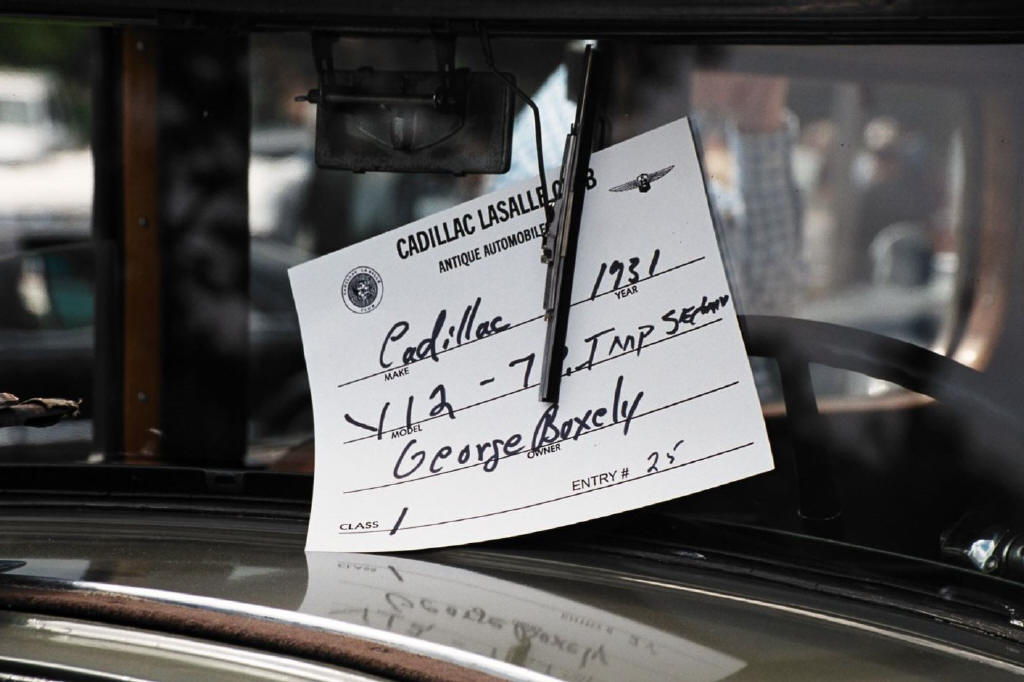 CADILLAC LASALLE
ANTIQUE AUTOMOBILE
Cadillac 1931
MAKE YEAR
V12 - 7 P. IMP SEDAN
MODEL
George Boxely
OWNER
CLASS 1 ENTRY # 25